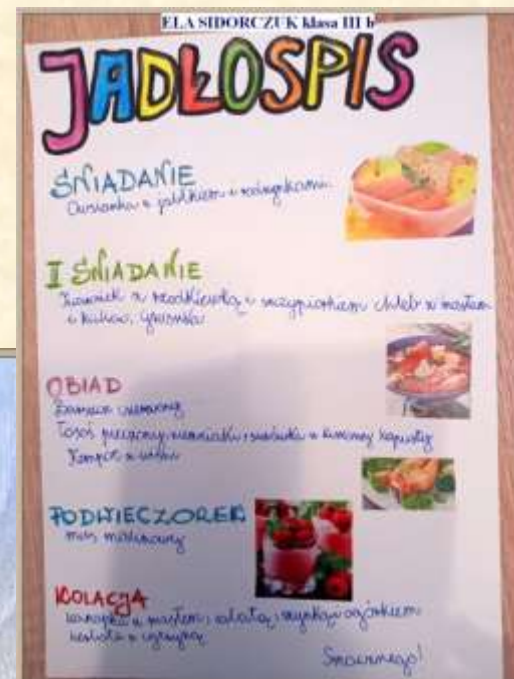 ELA SIDORCZUK klasa III b
JADŁOSPIS
ŚNIADANIE
Owsianka z jabłkiem i rodzynkami
II ŚNIADANIE
Twarożek z rzodkiewką i szczypiorkiem chleb z masłem
i kakao, gruszka
OBIAD
Barszcz czerwony
Łosoś pieczony, ziemniaki i surówka z kiszonej kapusty
Kompot z wiśni
PODWIECZOREK
mus malinowy
KOLACJA
kanapka z masłem, sałatą, szynką i ogórkiem
herbata z cytryną
Smacznego!